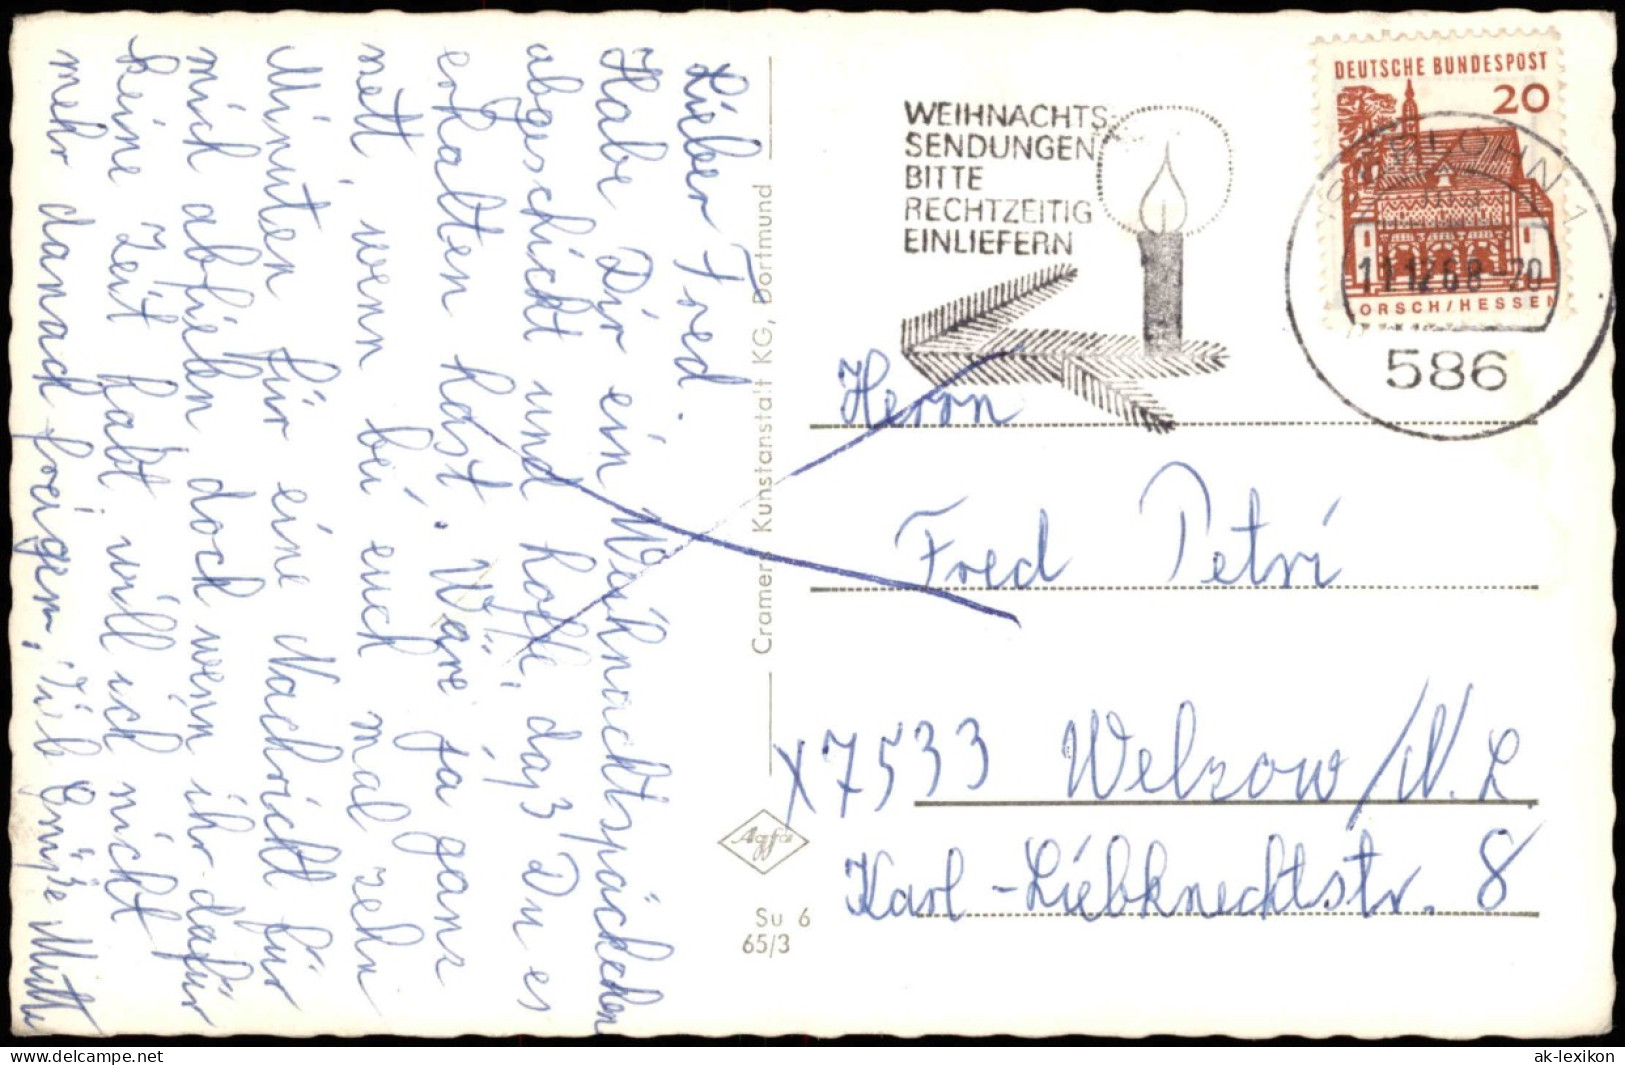 Lieber Fred.
Habe Dir ein Weihnachtspäckchen
abgeschickt und hoffe, daß Du es
erhalten hast. Wäre ja ganz
nett, wenn bei euch mal zehn
Minuten für eine Nachricht für
mich abfielen doch wenn ihr dafür
keine Zeit habt, will ich nicht
mehr danach
Cramers Kunstanstalt KG, Dortmund
Agfa
Su 6
65/3
WEIHNACHTS-
SENDUNGEN
BITTE
RECHTZEITIG
EINLIEFERN
DEUTSCHE BUNDESPOST
20
ORSCH/HESSEN
ISERLOHN 1
11.12.68-20
586
Herrn
Fred Petri
X7533 Welzow/N.L.
Karl-Liebknechtstr. 8
ak-lexikon
https://www.delcampe.net